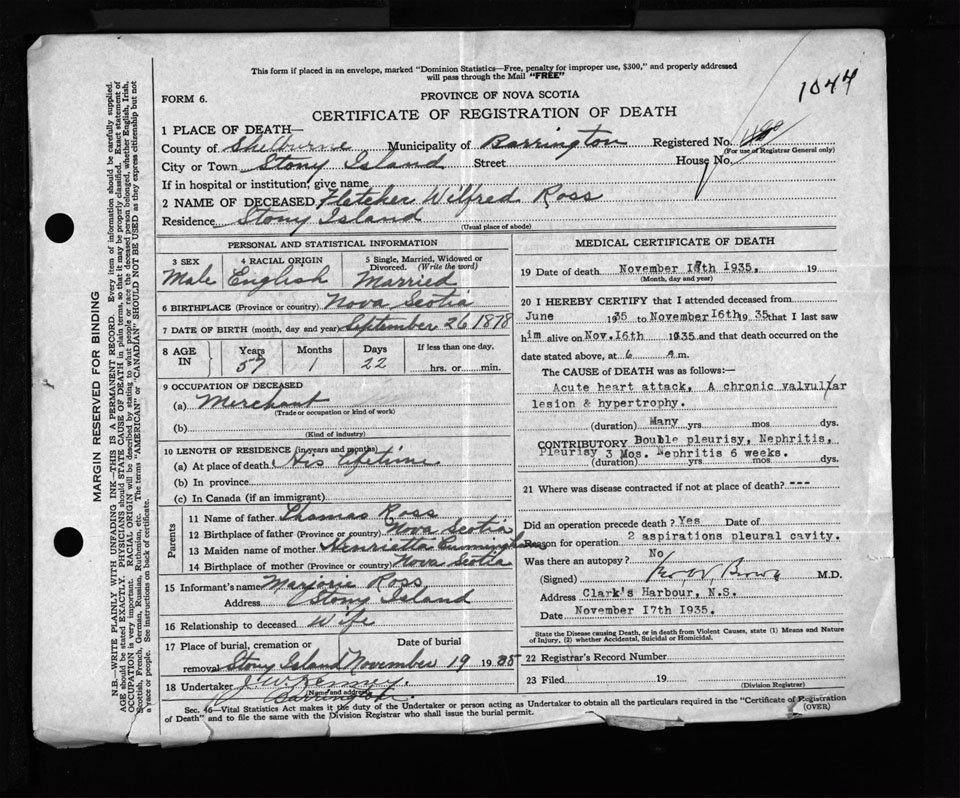 This form if placed in an envelope, marked "Dominion Statistics—Free, penalty for improper use, $300," and properly addressed
will pass through the Mail "FREE"
1044
FORM 6.
PROVINCE OF NOVA SCOTIA
CERTIFICATE OF REGISTRATION OF DEATH
1 PLACE OF DEATH—
County of Shelburne Municipality of Barrington Registered No.
(For use of Registrar General only)
City or Town Stony Island Street House No.
If in hospital or institution, give name
2 NAME OF DECEASED Fletcher Wilfred Ross
Residence Stony Island
(Usual place of abode)
PERSONAL AND STATISTICAL INFORMATION
3 SEX 4 RACIAL ORIGIN 5 Single, Married, Widowed or
Divorced. (Write the word)
Male English Married
6 BIRTHPLACE (Province or country) Nova Scotia
7 DATE OF BIRTH (month, day and year) September 26 1878
8 AGE IN Years Months Days If less than one day,
57 1 22 hrs. or min.
9 OCCUPATION OF DECEASED
(a) Merchant
(Trade or occupation or kind of work)
(b)
(Kind of industry)
10 LENGTH OF RESIDENCE (in years and months)
(a) At place of death His lifetime
(b) In province
(c) In Canada (if an immigrant)
Parents
11 Name of father Thomas Ross
12 Birthplace of father (Province or country) Nova Scotia
13 Maiden name of mother Henrietta Cunningham
14 Birthplace of mother (Province or country) Nova Scotia
15 Informant's name Marjorie Ross
Address Stony Island
16 Relationship to deceased Wife
17 Place of burial, cremation or Date of burial
removal Stony Island November 19 1935
18 Undertaker J. W. Kenney
(Name and address)
Barrington
MEDICAL CERTIFICATE OF DEATH
19 Date of death November 17th 1935, 19
(Month, day and year)
20 I HEREBY CERTIFY that I attended deceased from
June 1935 to November 16th 1935 that I last saw
him alive on Nov.16th 1935 and that death occurred on the
date stated above, at 6 a m.
The CAUSE of DEATH was as follows:—
Acute heart attack, A chronic valvular
lesion & hypertrophy.
(duration) Many yrs mos dys.
CONTRIBUTORY Double pleurisy, Nephritis,
Pleurisy 3 Mos. Nephritis 6 weeks.
(duration) yrs mos dys.
21 Where was disease contracted if not at place of death? ---
Did an operation precede death? Yes Date of
Reason for operation. 2 aspirations pleural cavity.
Was there an autopsy? No
(Signed) Brown M.D.
Address Clark's Harbour, N.S.
Date November 17th 1935.
State the Disease causing Death, or in death from Violent Causes, state (1) Means and Nature
of Injury, (2) whether Accidental, Suicidal or Homicidal.
22 Registrar's Record Number
23 Filed 19
(Division Registrar)
Sec. 46—Vital Statistics Act makes it the duty of the Undertaker or person acting as Undertaker to obtain all the particulars required in the "Certificate of Registration
of Death" and to file the same with the Division Registrar who shall issue the burial permit. (OVER)
MARGIN RESERVED FOR BINDING
N.B.—WRITE PLAINLY WITH UNFADING INK—THIS IS A PERMANENT RECORD. Every item of information should be carefully supplied.
AGE should be stated EXACTLY. PHYSICIANS should STATE CAUSE OF DEATH in plain terms, so that it may be properly classified. Exact statement of
OCCUPATION is very important. RACIAL ORIGIN will be described by stating to what people or race the deceased person belonged, whether English, Irish,
Scottish, French, German, Russian, Ruthenian, etc. The terms "AMERICAN" or "CANADIAN" SHOULD NOT BE USED as they express citizenship but not
a race or people. See instructions on back of certificate.